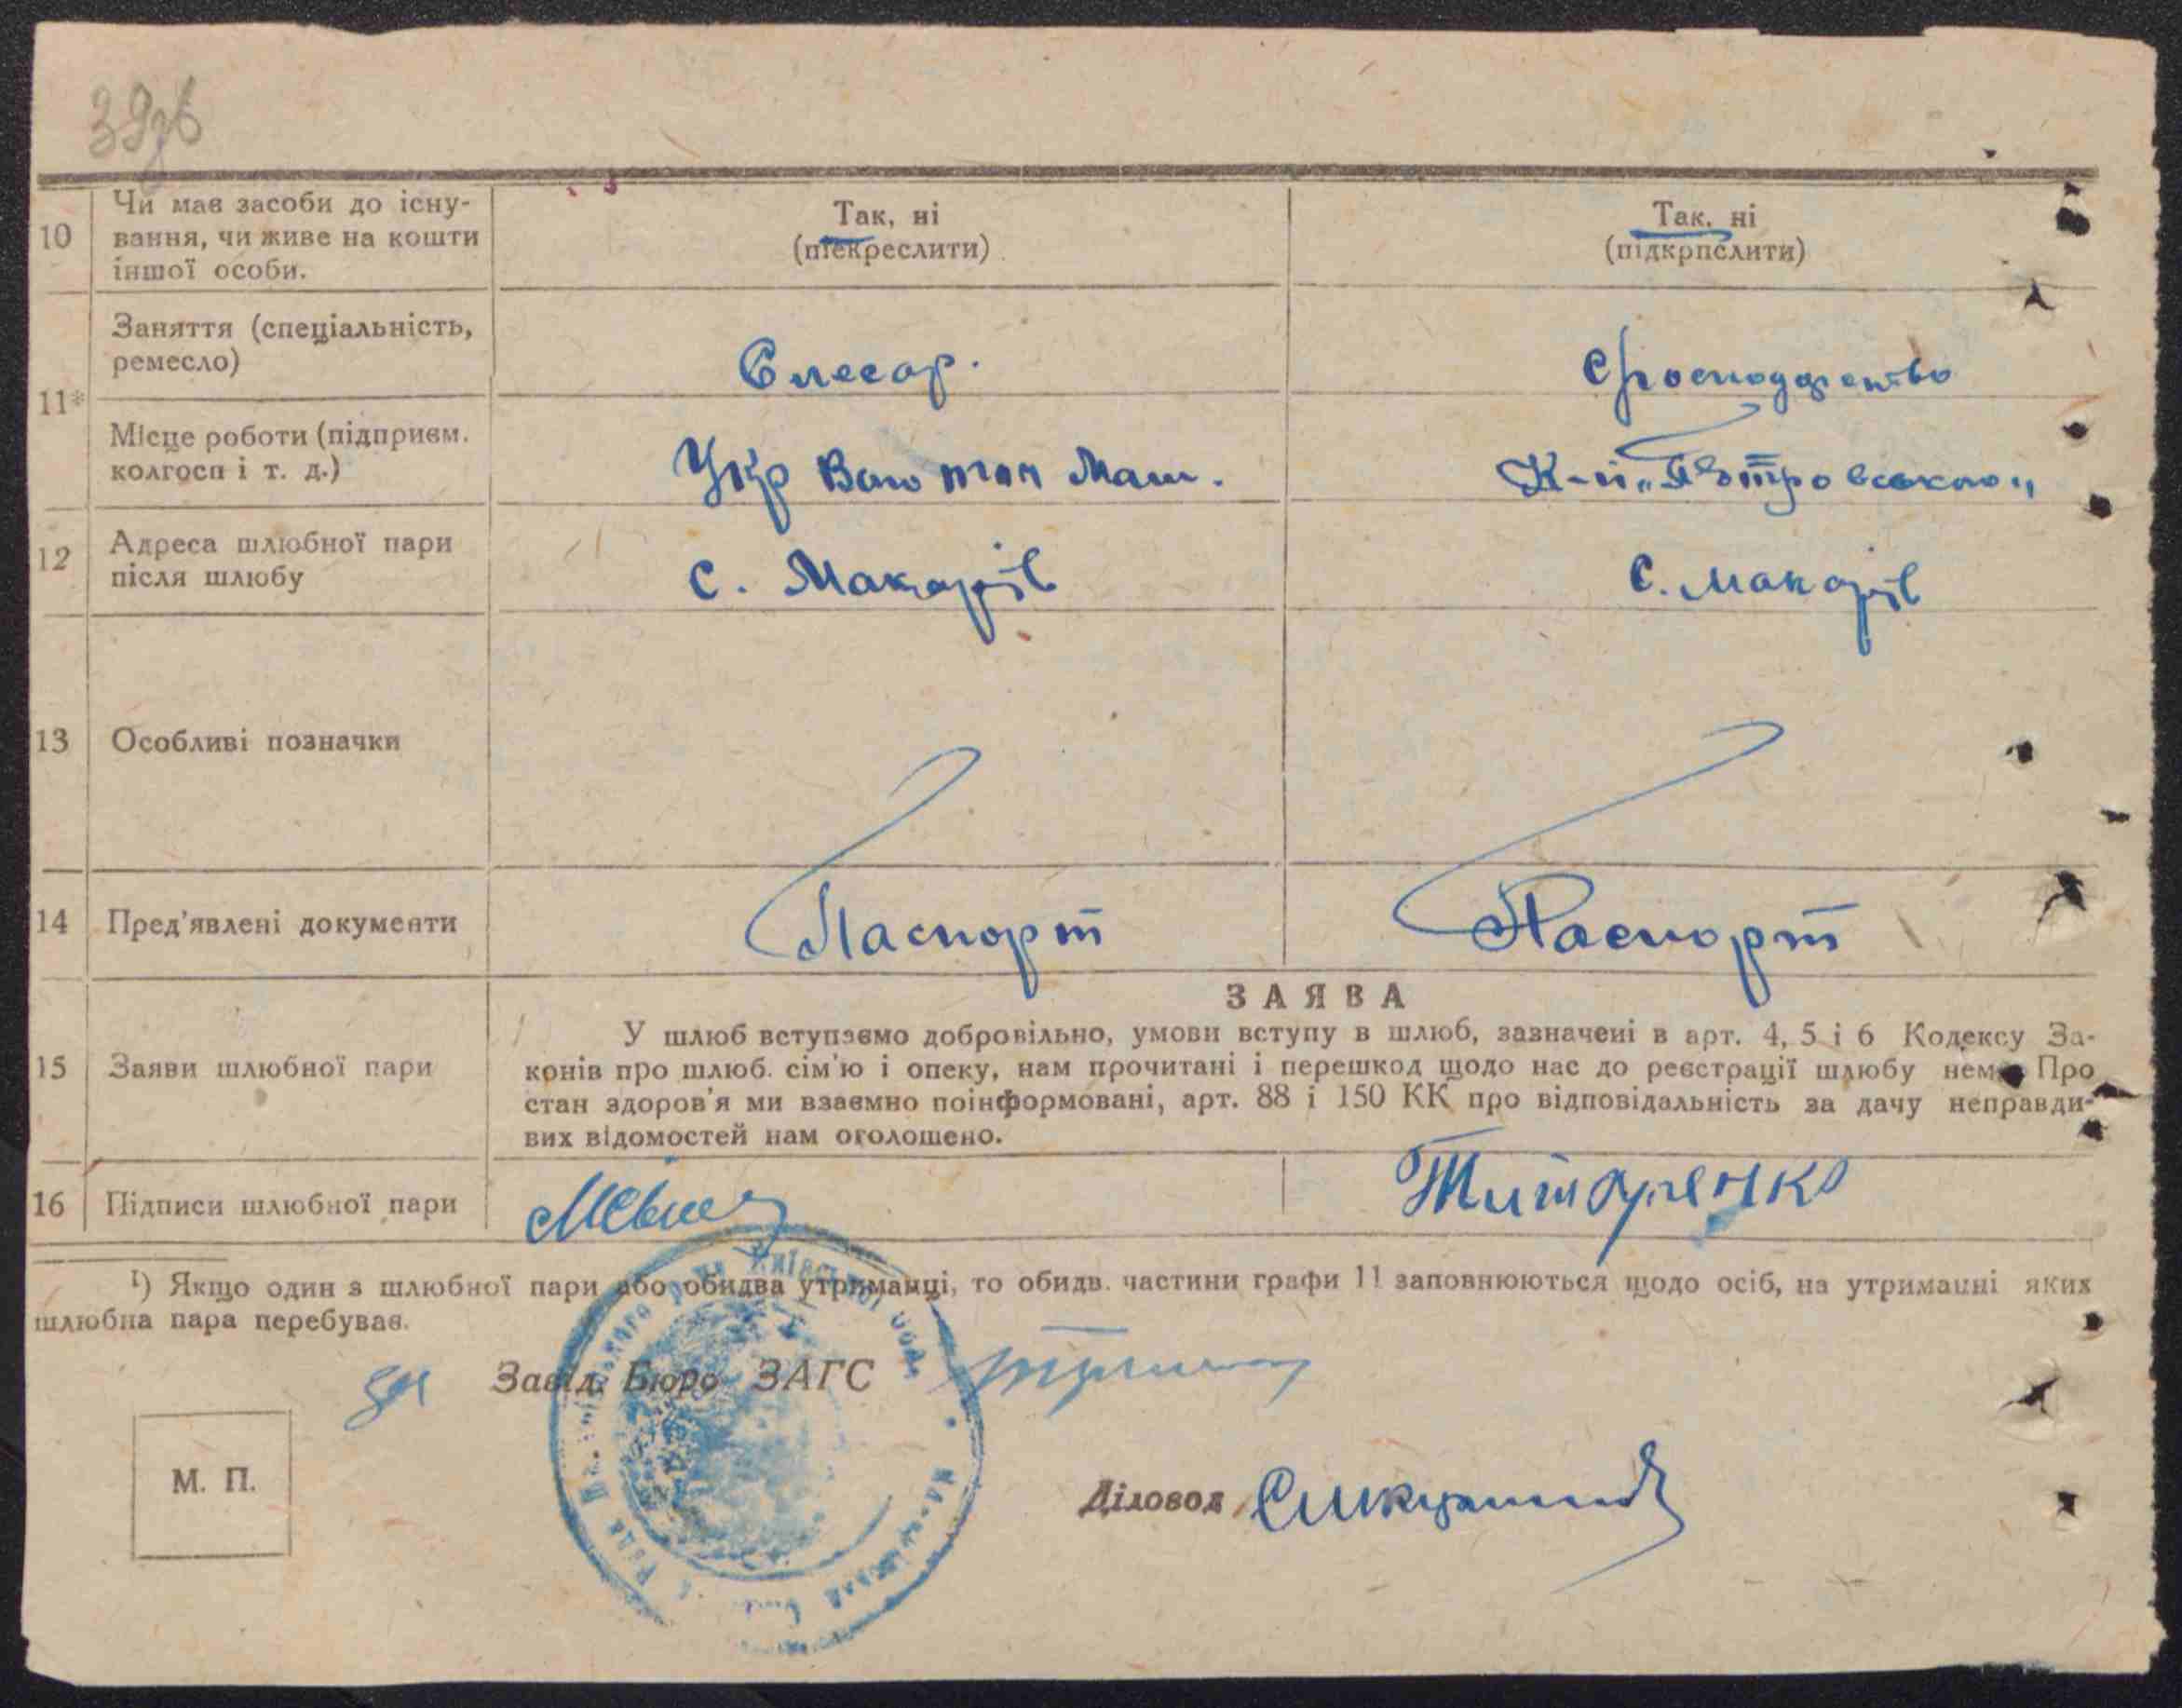 10
Чи має засоби до існу-
вання, чи живе на кошти
іншої особи.
Так, ні
(підкреслити)
Так, ні
(підкрпслити)
11*
Заняття (спеціальність,
ремесло)
Слесар.
с/господарство
Місце роботи (підприєм.
колгосп і т. д.)
Укр Маш.
К-п "Петровського"
12
Адреса шлюбної пари
після шлюбу
С. Макарів
С. Макарів
13
Особливі позначки
14
Пред'явлені документи
Паспорт
Паспорт
15
Заяви шлюбної пари
ЗАЯВА
У шлюб вступаємо добровільно, умови вступу в шлюб, зазначені в арт. 4, 5 і 6 Кодексу За-
конів про шлюб. сім'ю і опеку, нам прочитані і перешкод щодо нас до реєстрації шлюбу нема Про
стан здоров'я ми взаємно поінформовані, арт. 88 і 150 КК про відповідальність за дачу неправди-
вих відомостей нам оголошено.
16
Підписи шлюбної пари
Титаренко
¹) Якщо один з шлюбної пари або обидва утриманці, то обидв. частини графи 11 заповнюються щодо осіб, на утриманні яких
шлюбна пара перебуває.
Завід. Бюро ЗАГС
М. П.
Діловод